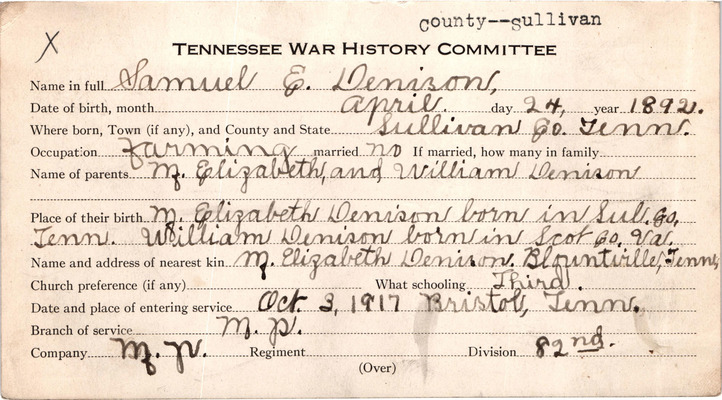 County--Sullivan
X
TENNESSEE WAR HISTORY COMMITTEE
Name in full Samuel E. Denison,
Date of birth, month April day 24, year 1892.
Where born, Town (if any), and County and State Sullivan Co. Tenn.
Occupation Farming married no If married, how many in family
Name of parents M. Elizabeth, and William Denison
Place of their birth M. Elizabeth Denison born in Sul. Co,
Tenn. William Denison born in Scot Co, Va.
Name and address of nearest kin M. Elizabeth Denison. Blountville, Tenn,
Church preference (if any) What schooling Third.
Date and place of entering service Oct 3, 1917 Bristol, Tenn.
Branch of service M. P.
Company M. P. Regiment Division 82nd.
(Over)